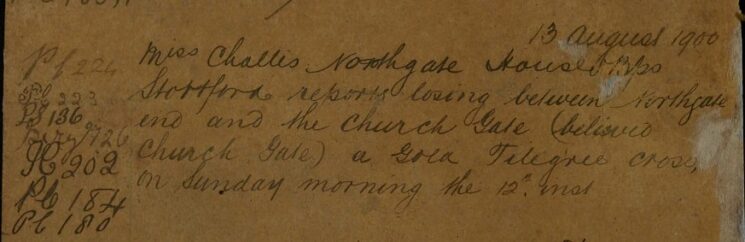 13 August 1900
Miss Challis Northgate House Bps
Stortford reports losing between Northgate
end and the Church Gate (believed
Church Gate) a Gold Filegree cross,
on Sunday morning the 12th inst
Pb 224
223
PS 136
726
PC 202
Pb 184
Pb 180